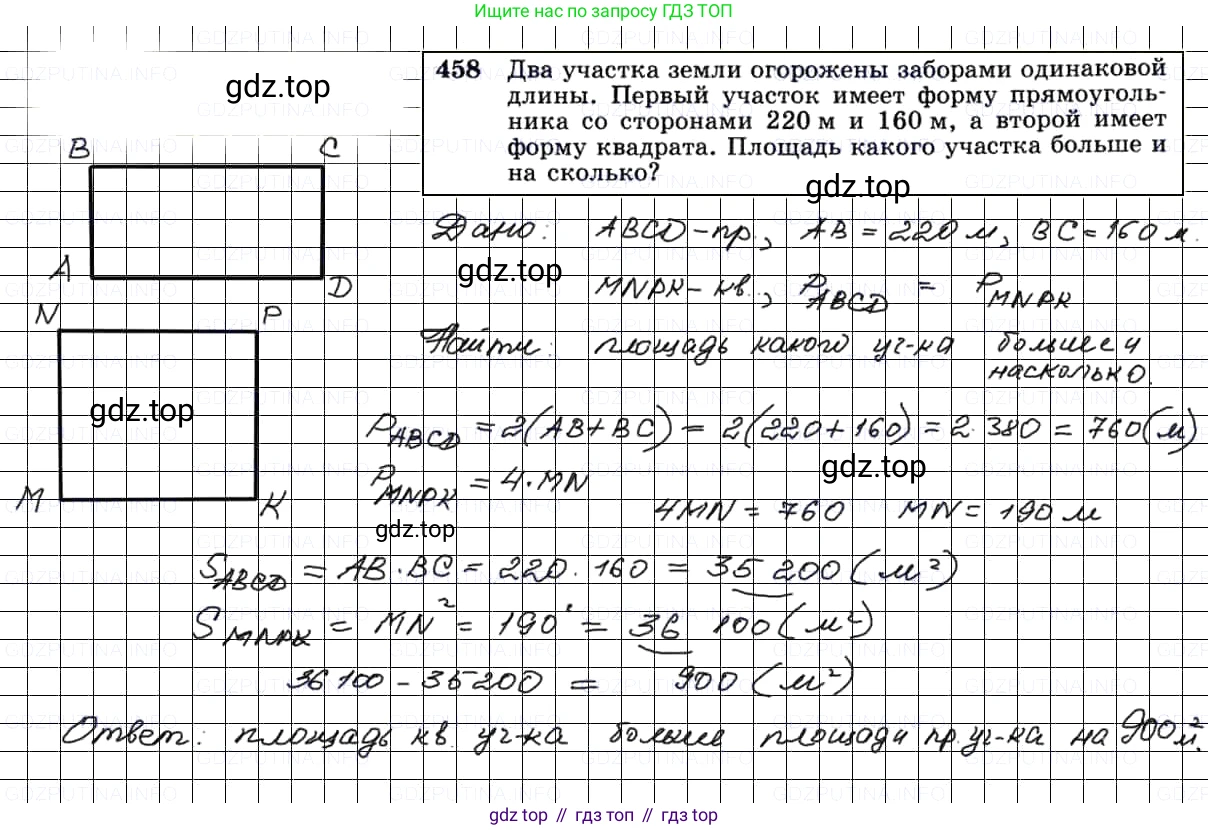 Ищите нас по запросу ГДЗ ТОП
gdz.top
458 Два участка земли огорожены заборами одинаковой
длины. Первый участок имеет форму прямоуголь-
ника со сторонами 220 м и 160 м, а второй имеет
форму квадрата. Площадь какого участка больше и
на сколько?
gdz.top
B C
A D
Дано: ABCD - пр., AB = 220 м, BC = 160 м.
gdz.top
MNPK - кв., P_ABCD = P_MNPK
N P
M K
Найти: площадь какого уч-ка больше и
насколько.
gdz.top
P_ABCD = 2(AB + BC) = 2(220 + 160) = 2 · 380 = 760 (м)
gdz.top
P_MNPK = 4 · MN
gdz.top
4MN = 760 MN = 190 м
S_ABCD = AB · BC = 220 · 160 = 35 200 (м²)
S_MNPK = MN² = 190² = 36 100 (м²)
36 100 - 35 200 = 900 (м²)
Ответ: площадь кв. уч-ка больше площади пр. уч-ка на 900 м².
gdz.top // гдз топ // gdz.top
GDZPUTINA.INFO